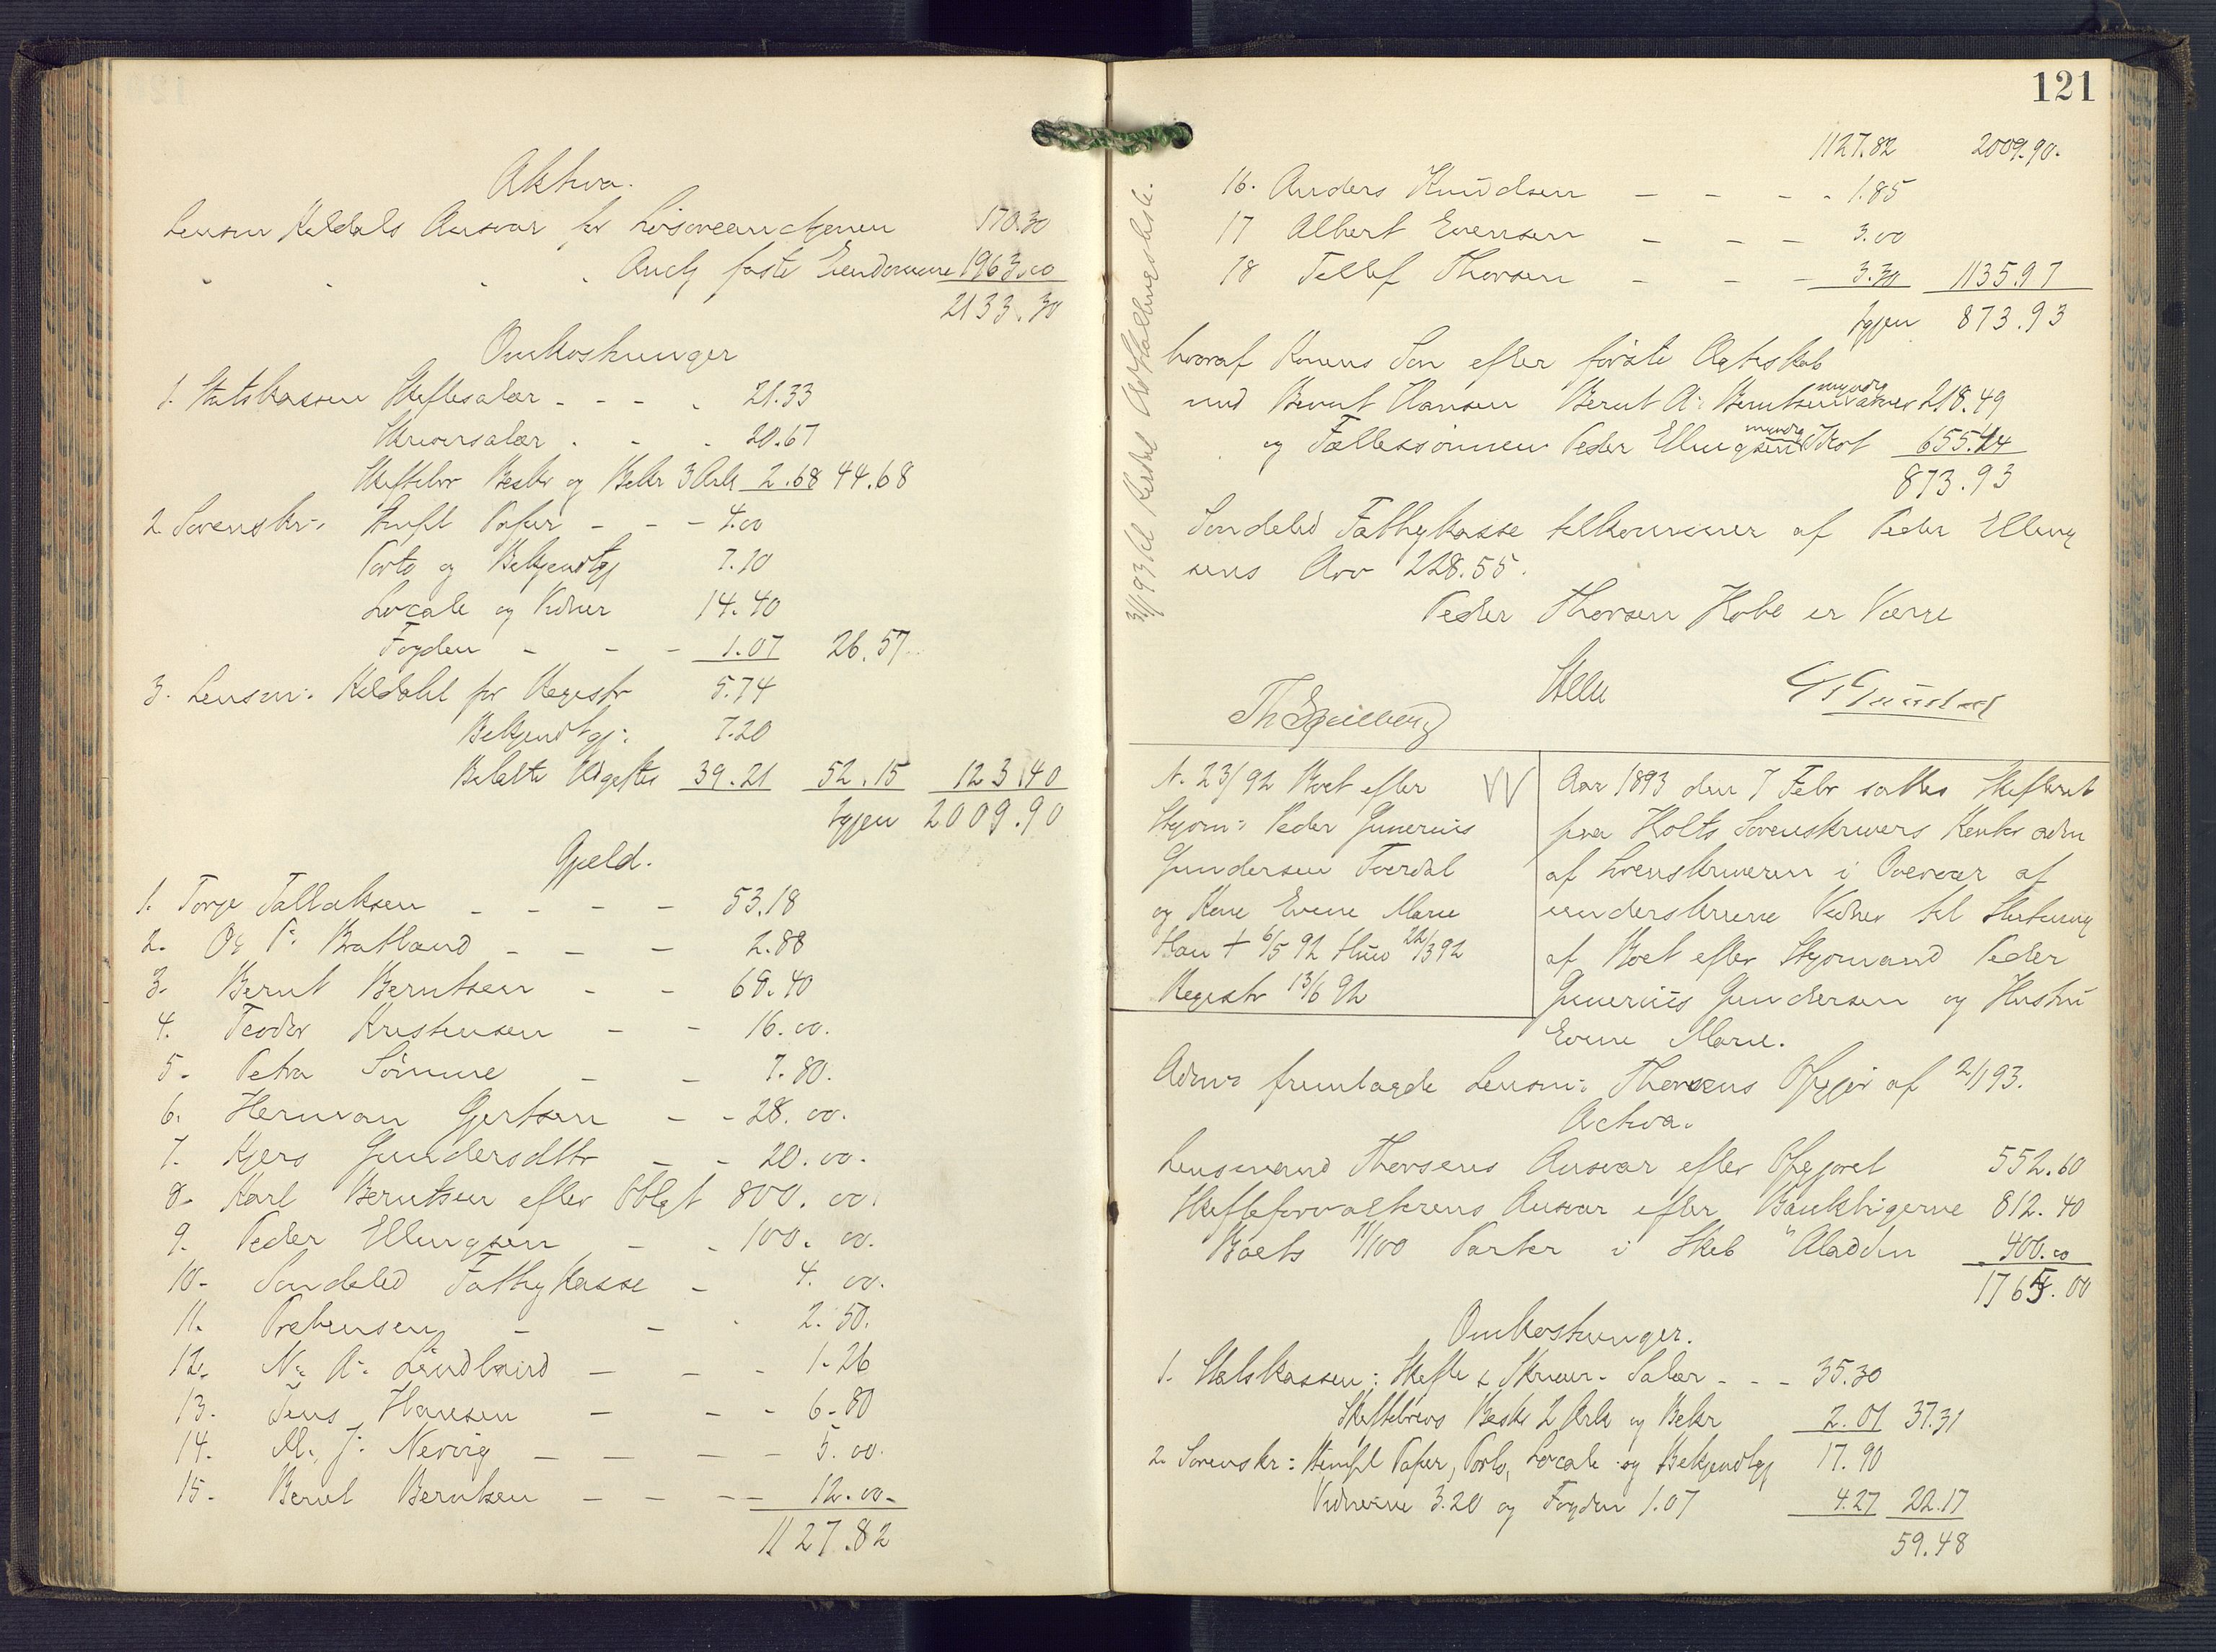 Aktiva.
Lensm Kildals Ansvar for Løsøreauctionen 170.30
" " " Auct faste Eiendomme 1963.00
2133.30
Omkostninger
1. Statskassen Skiftesalær - - - - 21.33
Skriversalær - - - 20.67
Skiftebr Beskr og Bekr 3 Ark 2.68 44.68
2 Sorenskr: Stempl Papir - - - 4.00
Porto og Bekjendtgj 7.10
Locale og Vidner 14.40
Fogden - - - 1.07 26.57
3. Lensm: Kildahl for Registr 5.74
Bekjendtgj: 7.20
Betalte Udgifter 39.21 52.15 123.40
Igjen 2009.90
Gjæld.
1. Torje Tallaksen - - - - 53.18
2. Og P. Bratland - - - 2.88
3. Bernt Berntsen - - 69.40
4. Teodor Kristensen - - 16.00.
5. Petra Sømme - - 7.80.
6. Herman Gjertsen - - 28.00.
7. Kjers Gundersdttr - - 20.00.
8. Karl Berntsen efter Oblgt 800.00.
9. Peder Ellingsen - - 100.00.
10. Søndeled Fattigkasse - 4.00.
11. Prebensen - - - 2.50.
12. N. A. Lindland - - - 1.26
13. Jens Hansen - - - 6.80
14. M. J. Nevig - - - - 5.00.
15. Bernt Berntsen - - - - 12.00.
1127.82
121
1127.82 2009.90.
16. Anders Knudsen - - - - 1.85
17 Albert Evensen - - - 3.00
18 Tellef Thorsen - - - 3.30 1135.97
Igjen 873.93
hvoraf Konens Søn efter første Ægteskab
med Bernt Hansen Bernt A. Berntsen myndig arver 218.49
og Fællessønnen Peder Ellingsen myndig 655.44
873.93
Søndeled Fattigkasse tilkommer af Peder Elling
sens Arv 228.55.
Peder Thorsen Hobe er Værge
Sluttet
Th Spilberg
G Gunstad
N. 23/92 Boet efter
Styrm: Peder Gunerius
Gundersen Tverdal
og Kone Evene Marie
Han + 6/5 92 Hun 22/3 92
Registr 13/6 92
Aar 1893 den 7 Febr sattes Skifteret
paa Holts Sorenskrivers Kontor adm
af Sorenskriveren i Overvær af
underskrevne Vidner til Slutning
af Boet efter Styrmand Peder
Gunerius Gundersen og Hustru
Evene Marie.
Adms fremlagde Lensm: Thorsens Opgjør af 2/1 93.
Activa.
Lensmand Thorsens Ansvar efter Opgjøret 552.60
Skifteforvalterens Ansvar efter Bankbøgerne 812.40
Boets 11/100 Parter i Skib "Aladdin 400.00
1765.00
Omkostninger.
1. Statskassen: Skifte & Skriver-Salær - - - 35.30
Skiftebrevs Beskr 2 Ark og Bekr 2.01 37.31
2. Sorenskr: Stempl Papir, Porto, Locale og Bekjendtgj 17.90
Vidnerne 3.20 og Fogden 1.07 4.27 22.17
59.48